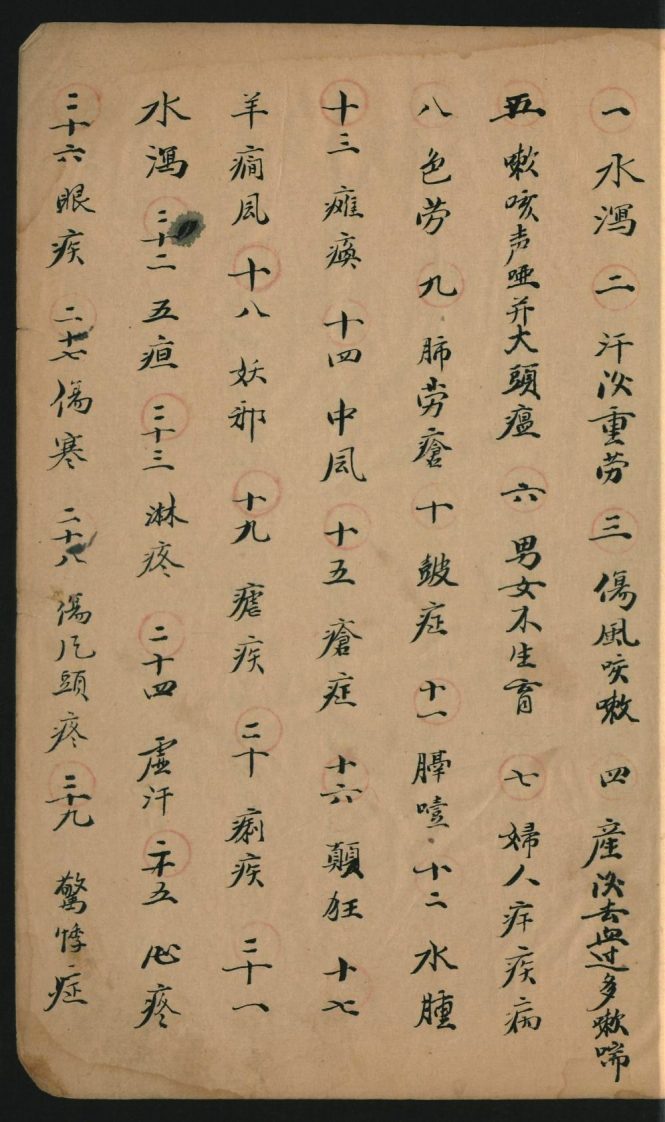 一 水瀉 二 汗淡重劳 三 傷風咳嗽 四 産淡去血过多嗽喘
五 嗽咳声哑并大頭瘟 六 男女不生育 七 婦人疾病
八 色劳 九 肺劳瘡 十 皷症 十一 膈噎 十二 水腫
十三 瘫痪 十四 中風 十五 瘡症 十六 顛狂 十七
羊癇風 十八 妖邪 十九 瘧疾 二十 痢疾 二十一
水瀉 二十二 五疸 二十三 淋疼 二十四 虚汗 二十五 心疼
二十六 眼疾 二十七 傷寒 二十八 傷风頭疼 二十九 驚悸症